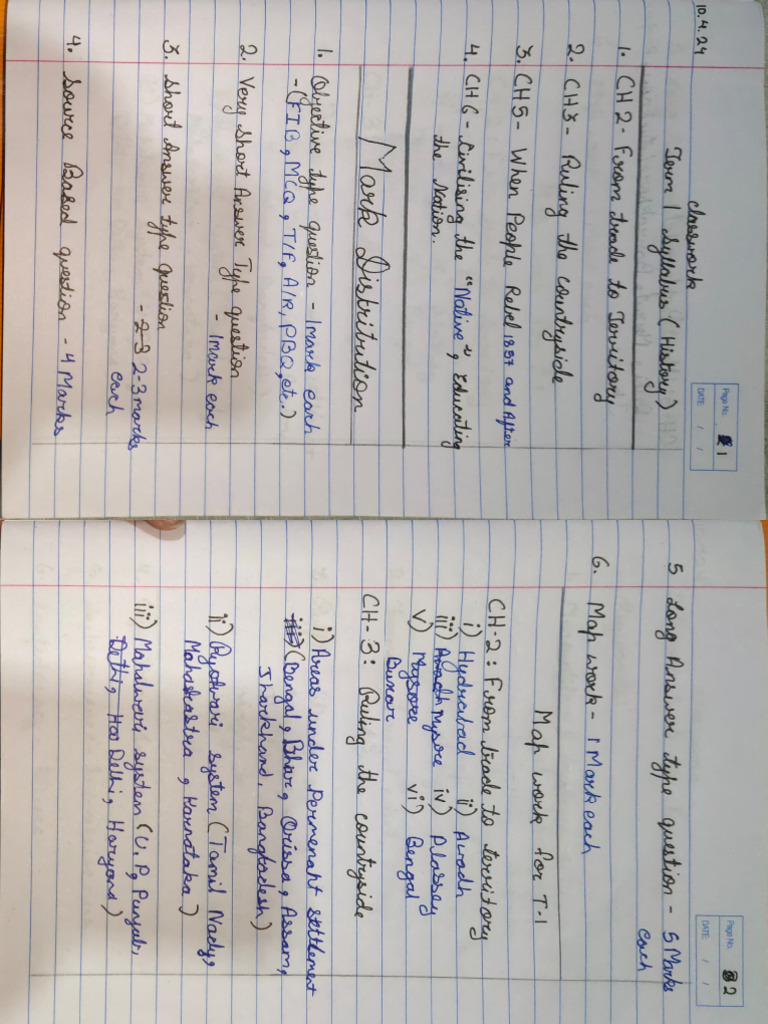 10.4.24
classwork
Page No. 1
DATE: / /
Term 1 Syllabus (History)
1. CH 2 - From trade to Territory
2. CH3 - Ruling the countryside
3. CH5 - When People Rebel 1857 and After
4. CH 6 - Civilising the "Native", Educating
the Nation.
Mark Distribution
1. Objective type question - 1mark each
- (FIB, MCQ, T/F, A/R, PBQ, etc.)
2. Very Short Answer Type question
- 1mark each
3. Short Answer type question
- 2-3 2-3 marks
each
4. Source Based question - 4 Marks
Page No. 2
DATE: / /
5 Long Answer type question - 5 Marks
each
6. Map work - 1 Mark each
Map work for T-1
CH-2 : From trade to territory
i) Hyderabad ii) Awadh
iii) Awadh Mysore iv) Plassey
v) Mysore vi) Bengal
Buxar
CH-3 : Ruling the countryside
i) Areas under Permenant settlement
(Bengal, Bhiar, Orissa, Assam,
Jharkhand, Bangladesh)
ii) Ryotwari system (Tamil Nadu,
Mahakastra, Karnataka)
iii) Mahalwari system (U.P, Punjab,
Delhi, Delhi, Haryana)